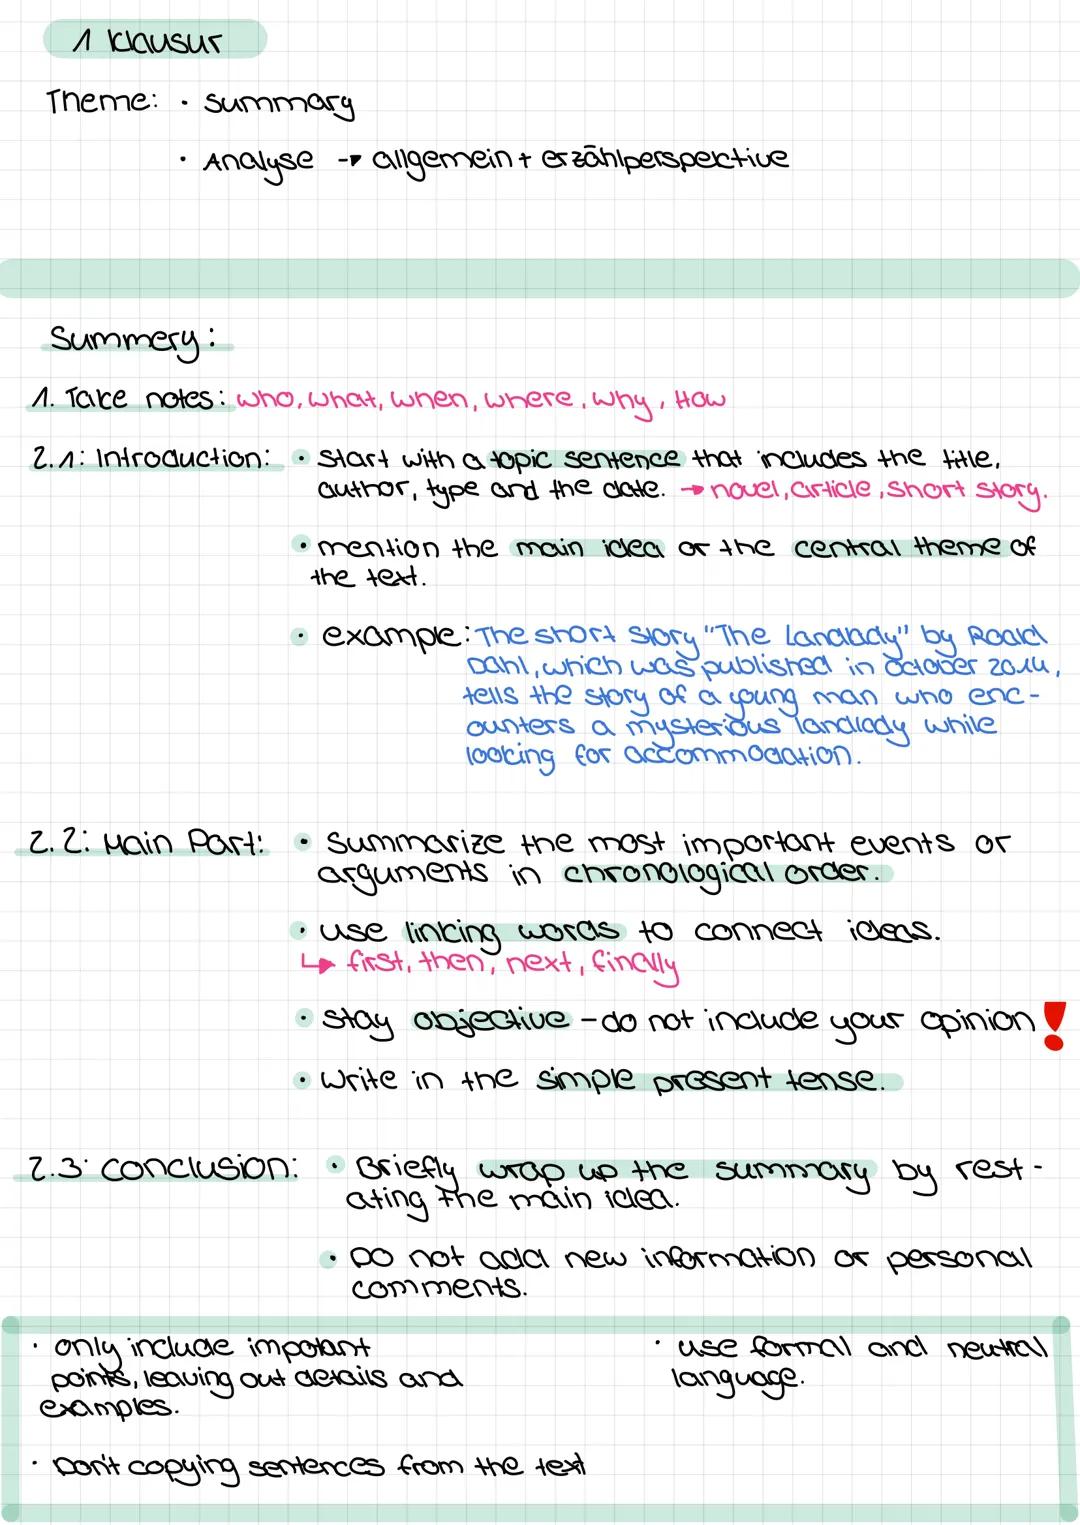 1 Klausur
Theme: · summary
· Analyse → allgemein + erzählperspektive
Summery:
1. Take notes: who, what, when, where, why, How
2.1: Introduction: · Start with a topic sentence that includes the title,
author, type and the date. → novel, article, short story.
· mention the main idea or the central theme of
the text.
· example: The short story "The Landlady" by Roald
Dahl, which was published in october 2014,
tells the story of a young man who enc-
ounters a mysterious landlady while
looking for accommodation.
2.2: Main Part: · Summarize the most important events or
arguments in chronological order.
· use linking words to connect ideas.
↳ first, then, next, finally
· stay objective - do not include your opinion!
· write in the simple present tense.
2.3: conclusion: · Briefly wrap up the summary by rest-
ating the main idea.
· DO not add new information or personal
comments.
· only include impotant
points, leaving out details and
examples.
· Don't copying sentences from the text
· use formal and neutral
language.